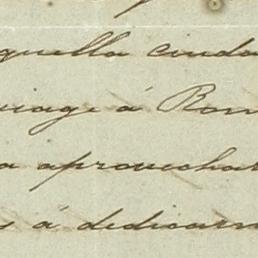 quella ciuda
viage á Rom
a aprovechar
s á dedicar